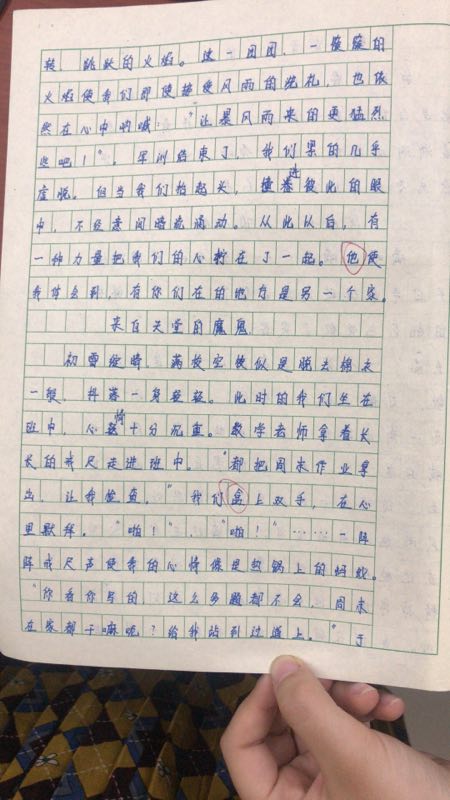 转 跳跃的火焰。这一团团，一簇簇的
火焰使我们即使接受风雨的洗礼，也依
然在心中呐喊："让暴风雨来的更猛烈
些吧！"。军训结束了，我们累的几乎
虚脱。但当我们抬起头，撞进彼此的眼
中，不经意间暗流涌动。从此以后，有
一种力量把我们的心拧在了一起。他使
我体会到，有你们在的地方是另一个家。
来自天堂的魔鬼
初雪绽晴，满校空枝似是脱去棉衣
一般，抖落一身轻轻。此时的我们坐在
班中，心情十分沉重。数学老师拿着长
长的戒尺走进班中。"都把周末作业拿
出，让我检查，"我们盒上双手，在心
里默拜。"啪！"，"啪！"……一阵
阵戒尺声使我的心情像是热锅上的蚂蚁。
"你看你写的，这么多题都不会，周末
在家都干嘛呢？给我站到过道上。"于